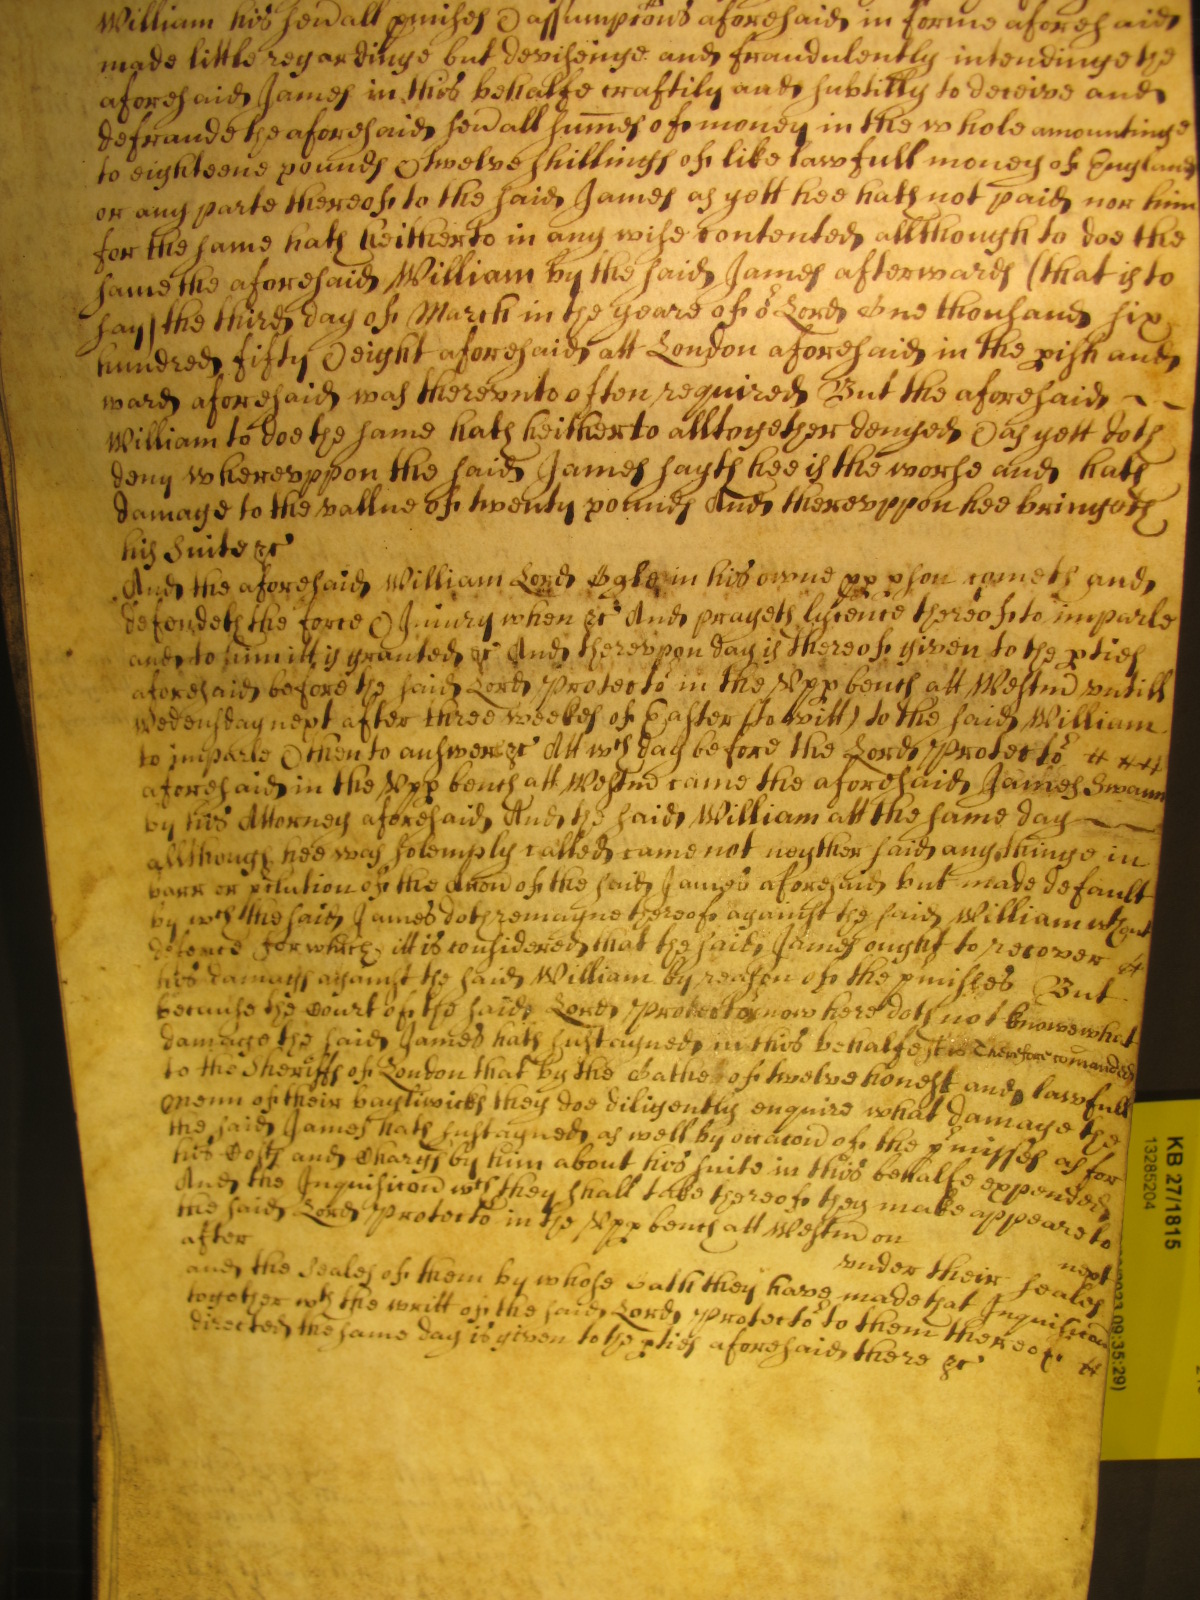 William his sev'all p'mises & assumptions aforesaid in forme aforesaid
made little regardinge but deviseinge and fraudulently intendinge the
aforesaid James in this behalfe craftily and subtilly to deceive and
defraude the aforesaid sev'all sumes of money in the whole amountinge
to eighteene pounds & twelve shillings of like lawfull money of England
or any parte thereof to the said James as yett hee hath not paid nor him
for the same hath heitherto in any wise contented allthough to doe the
same the aforesaid William by the said James afterwards (that is to
say) the third day of March in the yeare of or Lord One thousand six
hundred fifty & eight aforesaid att London aforesaid in the pish and
ward aforesaid was therevnto often required But the aforesaid
William to doe the same hath heitherto alltogether denyed & as yett doth
deny wherevppon the said James sayth hee is the worse and hath
damage to the vallue of twenty pounds And therevppon hee bringeth
his Suite &c
And the aforesaid William Lord Ogle in his owne pp pson cometh and
defendeth the force & Iniury when &c And prayeth lycence thereof to imparle
and to him itt is granted &c And therevpon day is thereof given to the pties
aforesaid before the said Lord Protector in the Vpp bench att Westm vntill
Wedensday next after three weekes of Easter (to witt) to the said William
to imparle & then to answer &c Att wch day before the Lord Protector
aforesaid in the Vpp bench att Westm came the aforesaid James Swann
by his Attorney aforesaid And the said William att the same day
allthough hee was solemply called came not neyther said any thinge in
barr or p'clution of the accon of the said James aforesaid but made default
by wch the said James doth remayne thereof against the said William wthout
defence for which itt is considered that the said James ought to recover
his damages against the said William by reason of the p'misses But
because the Court of the said Lord Protector now here doth not knowe what
damage the said James hath sustayned in this behalfe It is Therefore comanded
to the Sheriffs of London that by the Oathe of twelve honest and lawfull
menn of their baylywicks they doe diligently enquire what damage the
the said James hath sustayned as well by occacon of the p'misses as for
his Costs and Charges by him about his suite in this behalfe expended
And the Inquisicon wch they shall take thereof they make appeare to
the said Lord Protector in the Vpp bench att Westm on next
after vnder their seales
and the Seales of them by whose Oath they have made that Inquisicon
together wth the writt of the said Lord Protector to them thereof
directed the same day is given to the pties aforesaid there &c
KB 27/1815
13285204
09:35:29)